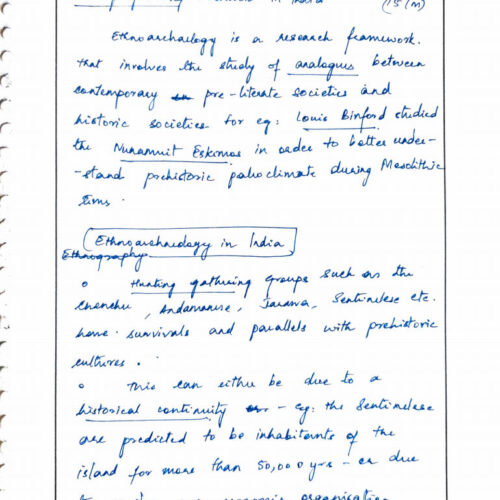 in India (15 M)
Ethnoarchaeology is a research framework.
that involves the study of analogues between
contemporary pre-literate societies and
historic societies for eg: Louis Binford studied
the Nunamuit Eskimos in order to better under-
-stand prehistoric paleoclimate during Mesolithic
times.
Ethnoarchaeology in India
Ethnography.
Hunting gathering groups such as the
Chenchu, Andamanese, Jarawa, Sentinelese etc.
have survivals and parallels with prehistoric
cultures.
This can either be due to a
historical continuity - eg: the Sentinelese
are predicted to be inhabitants of the
island for more than 50,000 yrs - or due
organisation